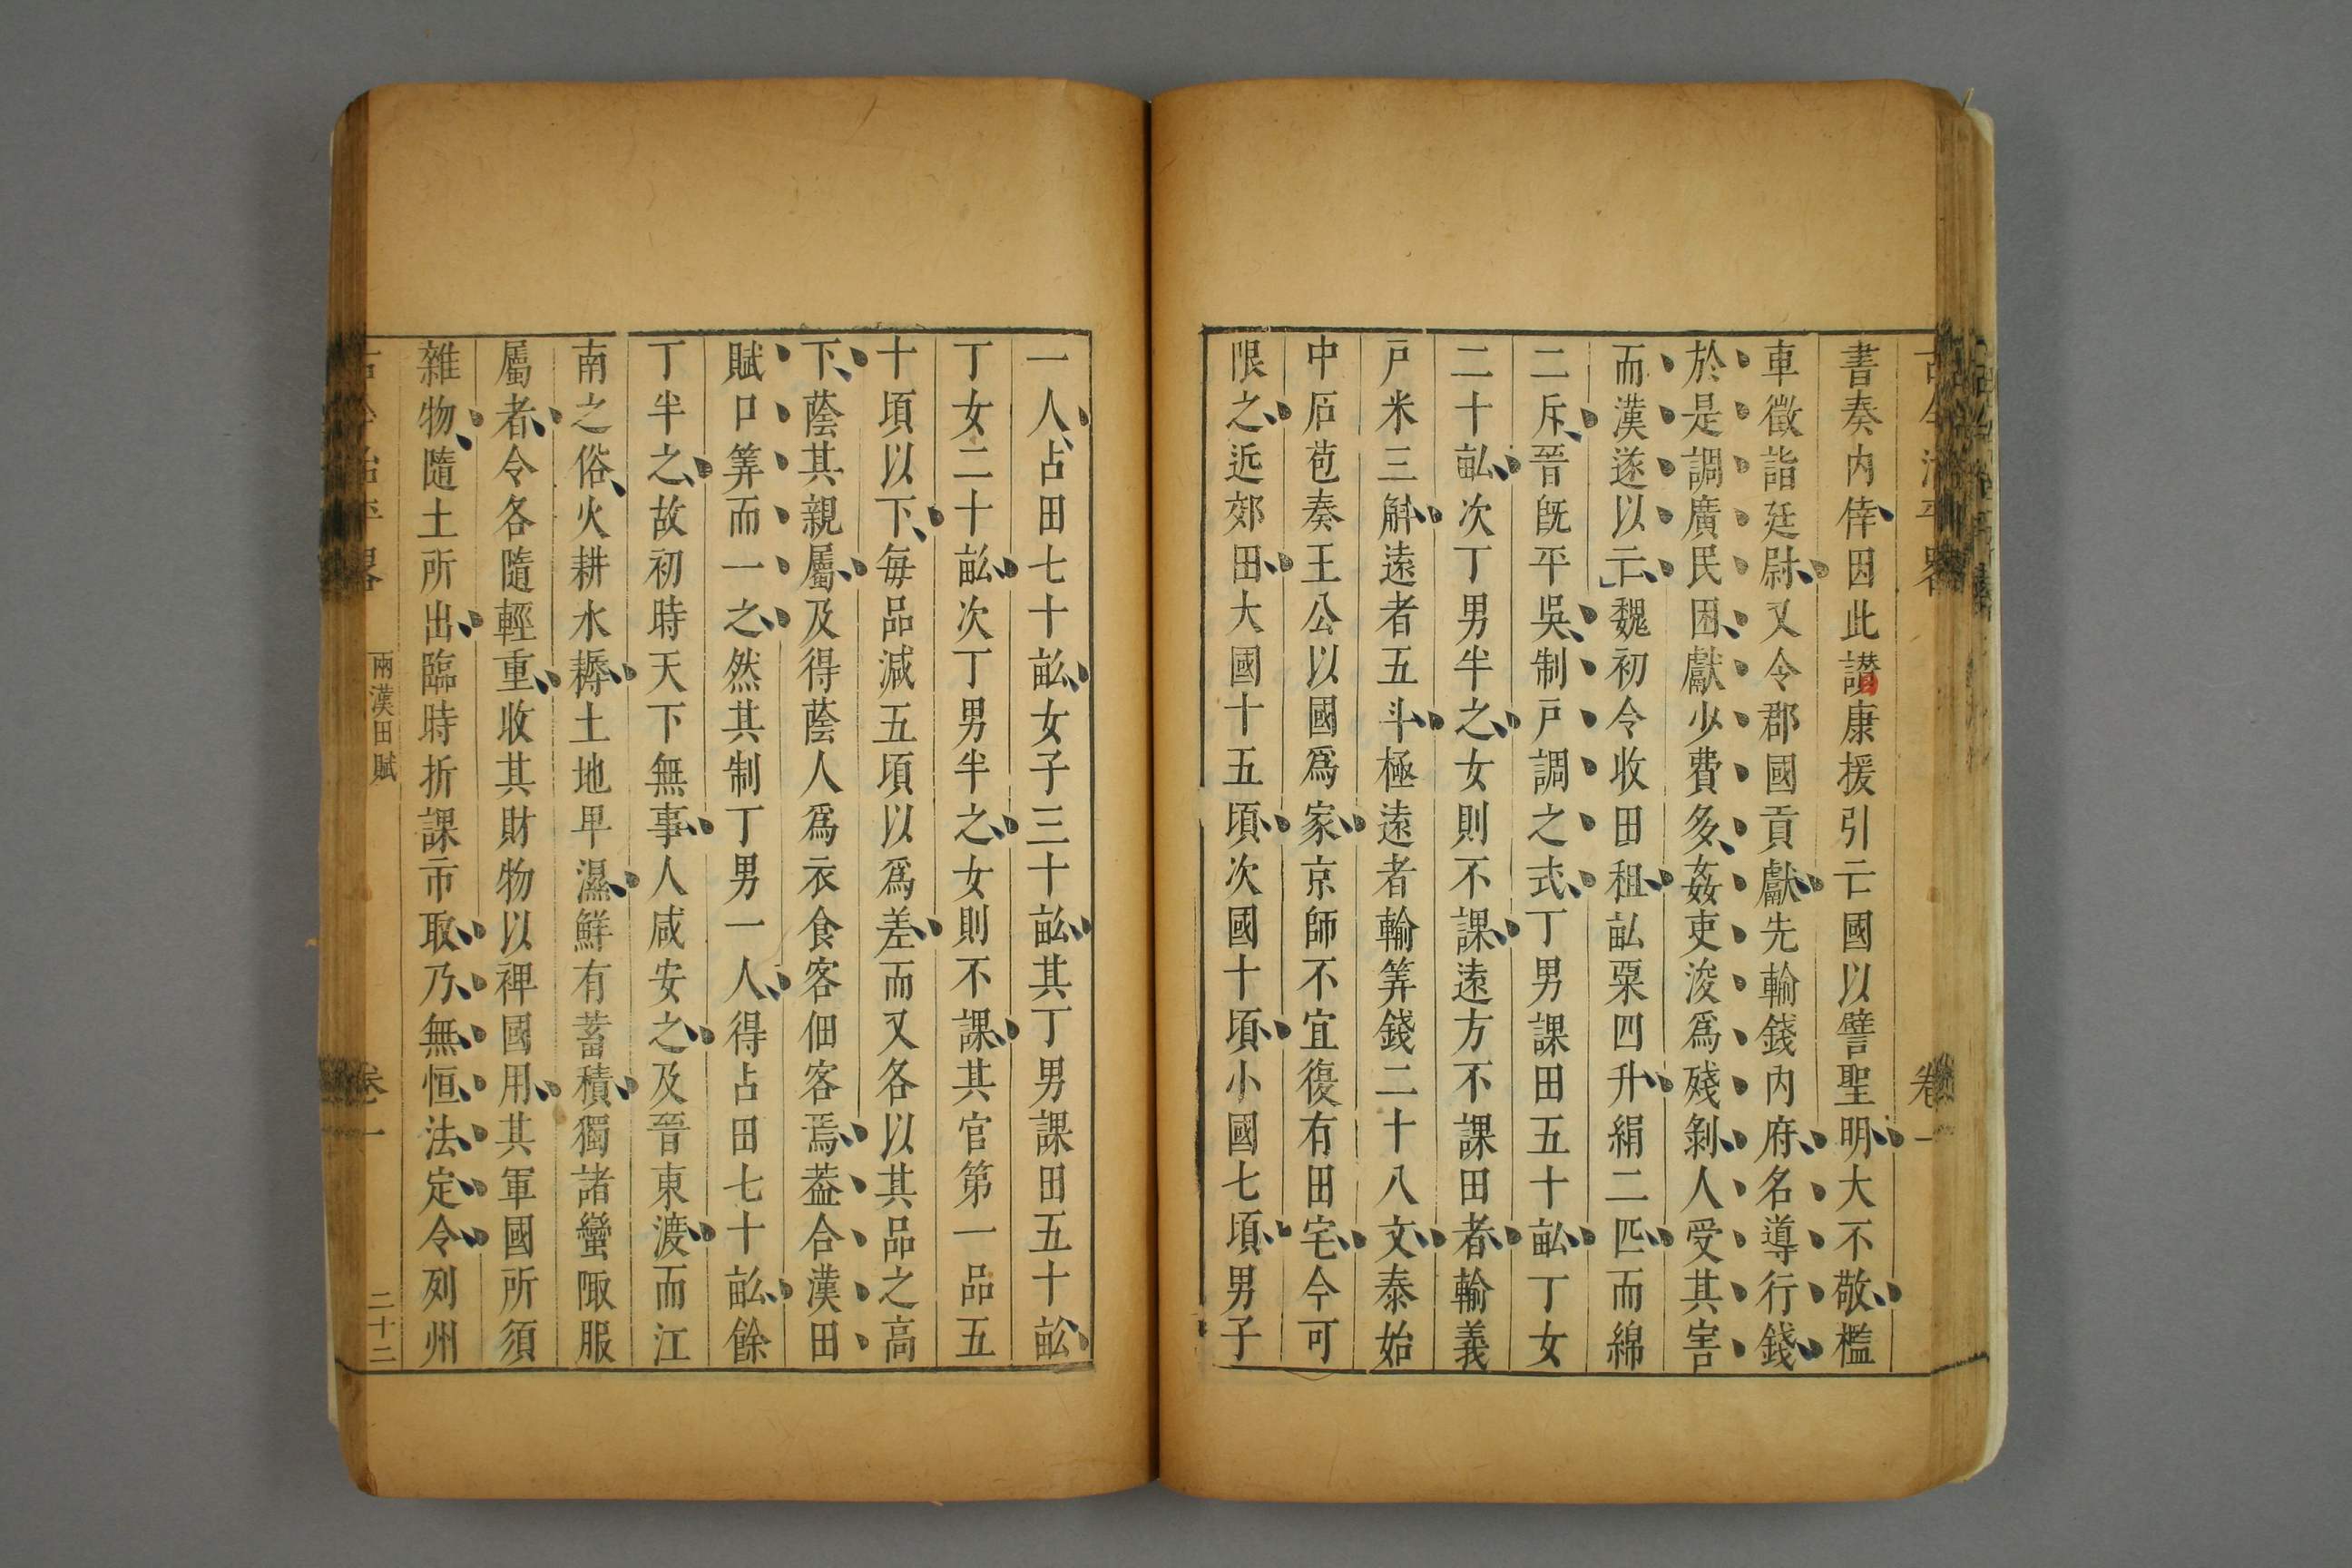 古今治平畧
卷一
書奏内倖因此譖康援引亡國以譬聖明大不敬檻
車徵詣廷尉又令郡國貢獻先輸錢内府名導行錢
於是調廣民困獻少費多姦吏浚為殘剝人受其害
而漢遂以亡魏初令收田租畝粟四升絹二匹而綿
二斥晉既平吳制戸調之式丁男課田五十畝丁女
二十畝次丁男半之女則不課遠方不課田者輸義
戸米三斛遠者五斗極遠者輸筭錢二十八文泰始
中石苞奏王公以國爲家京師不宜復有田宅今可
限之近郊田大國十五頃次國十頃小國七頃男子
一人占田七十畝女子三十畝其丁男課田五十畝
丁女二十畝次丁男半之女則不課其官第一品五
十頃以下每品減五頃以爲差而又各以其品之高
下蔭其親屬及得蔭人爲衣食客佃客焉葢合漢田
賦口筭而一之然其制丁男一人得占田七十畝餘
丁半之故初時天下無事人咸安之及晉東渡而江
南之俗火耕水耨土地卑濕鮮有蓄積獨諸蠻陬服
屬者令各隨輕重收其財物以裨國用其軍國所須
雜物隨土所出臨時折課市取乃無恒法定令列州
古今治平畧
兩漢田賦
卷一
二十二